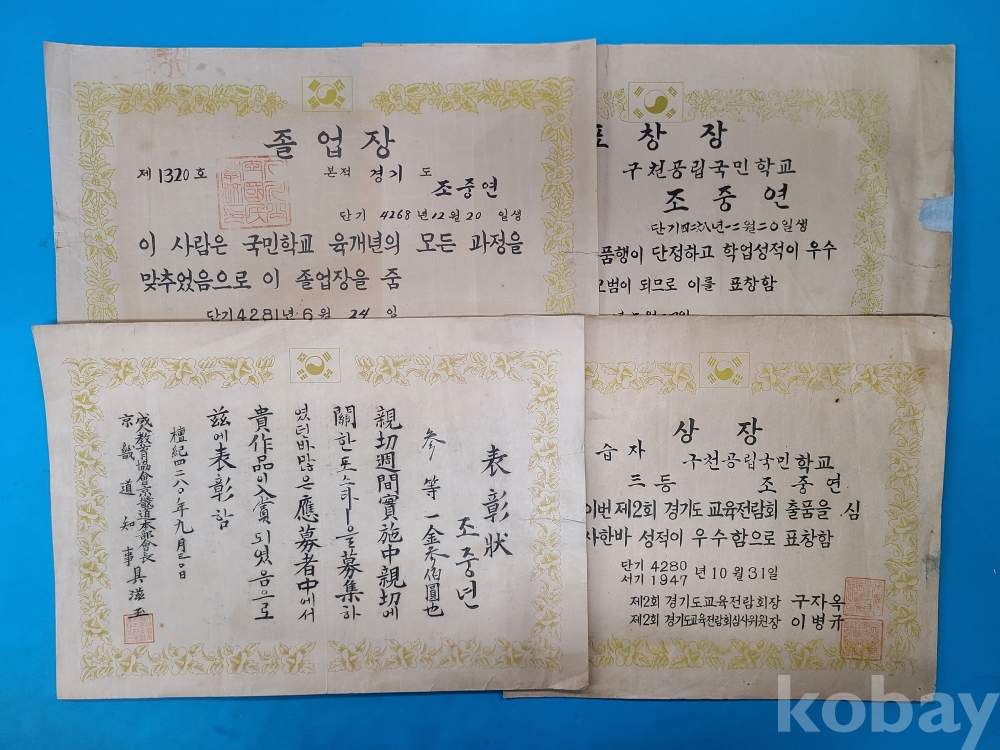 졸업장
제1320호
본적 경기 도
조중연
단기 4268년12월20 일생
이 사람은 국민학교 육개년의 모든 과정을
맞추었음으로 이 졸업장을 줌
단기4281년6월 24 일
창장
구천공립국민학교
조중연
품행이 단정하고 학업성적이 우수
범이 되므로 이를 표창함
表彰狀
조중년
參等 一金參佰圓也
親切週間實施中親切에
關한 포스터ー을募集하
였더바많은應募者中에서
貴作品이入賞되였음으로
玆에表彰함
檀紀四二八○年九月三○日
成人敎育協會京畿道本部會長
京畿道知事 具滋玉
상장
습자
구천공립국민학교
三등 조중연
이번제2회 경기도교육전람회 출품을 심
사한바 성적이 우수함으로 표창함
단기 4280
서기 1947 년10월31일
제2회 경기도교육전람회장 구자옥
제2회 경기도교육전람회심사위원장 이병규
kobay